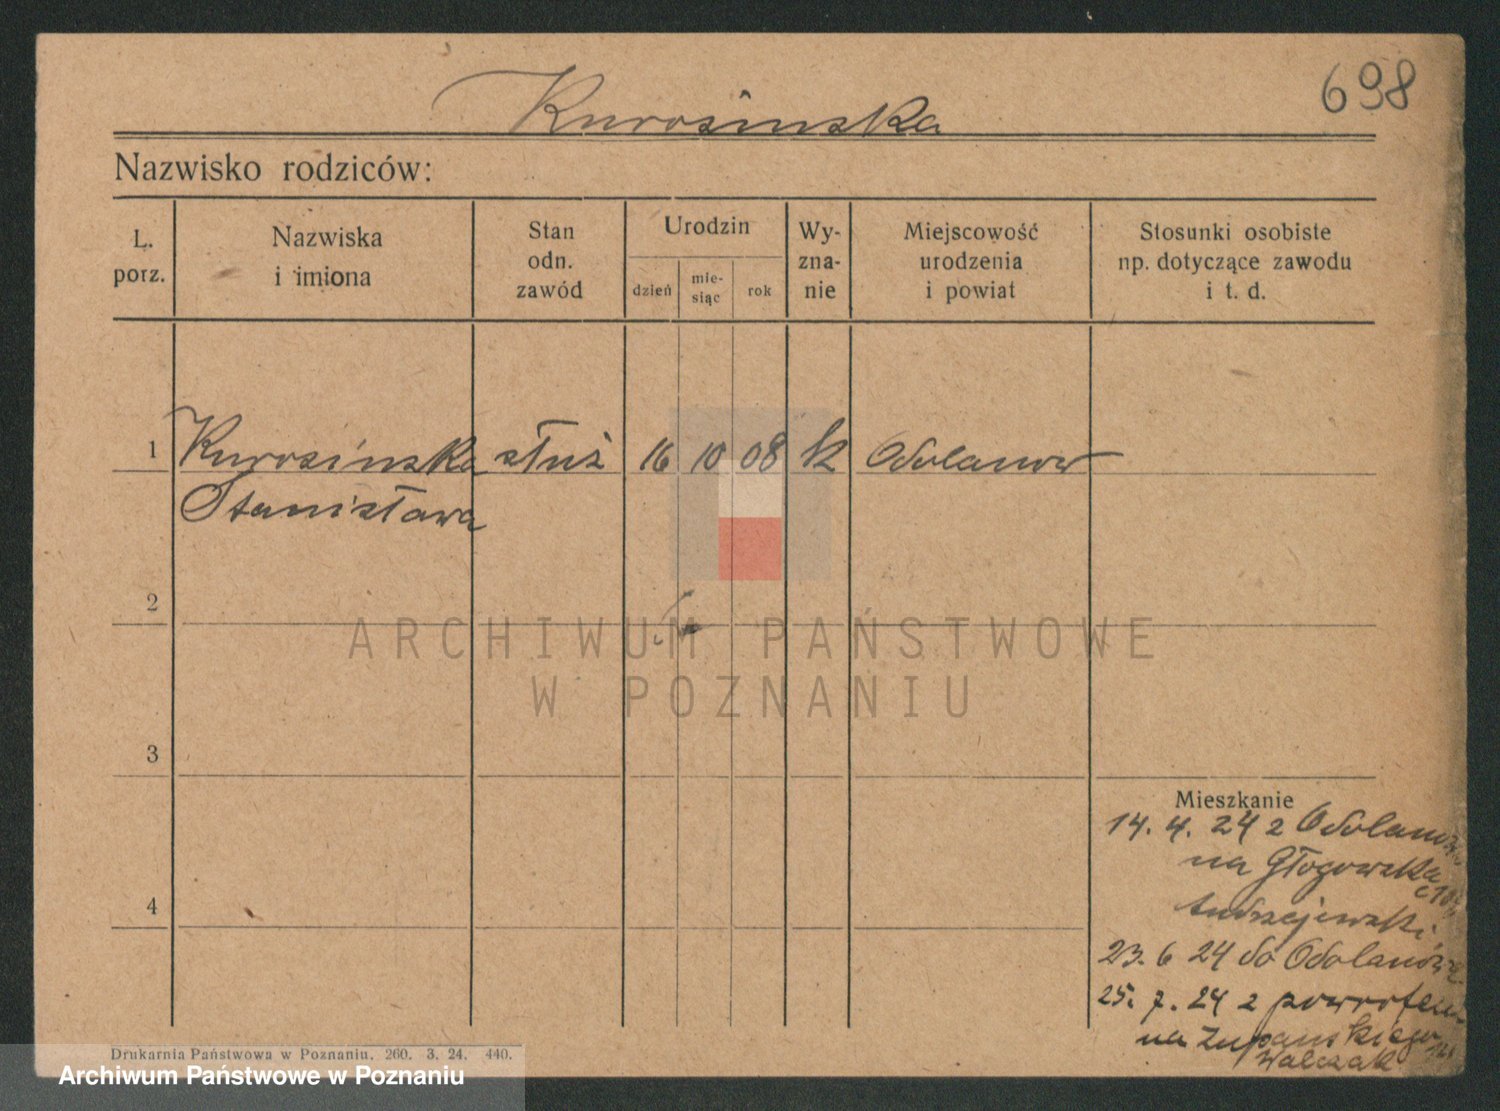 698
Kurosinska
Nazwisko rodziców:
L. porz.
Nazwiska i imiona
Stan odn. zawód
Urodzin
dzień
mie-siąc
rok
Wy-zna-nie
Miejscowość urodzenia i powiat
Stosunki osobiste np. dotyczące zawodu i t. d.
1 Kurosinska służ 16 10 08 k Odolanow
Stanisława
2
ARCHIWUM PAŃSTWOWE
W POZNANIU
3
Mieszkanie
14. 4. 24 z Odolanowa
na Głogowska
4
Andrzejewski
23. 6 24 do Odolanowa
25. 7. 24 z powrotem
na Żupańskiego
Walczak
Drukarnia Państwowa w Poznaniu. 260. 3. 24. 440.
Archiwum Państwowe w Poznaniu